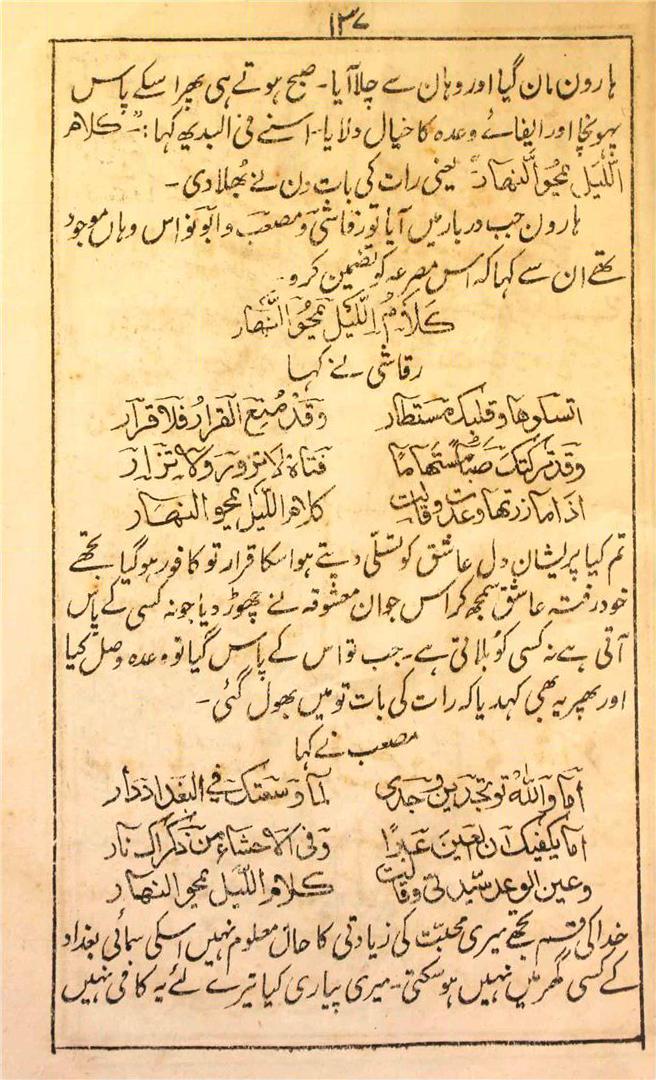 ۱۳۷
ہارون مان گیا اور وہان سے چلا آیا۔ صبح ہوتے ہی پھر اسکے پاس
پہونچا اور ایفائے وعدہ کا خیال دلایا۔ اسنے فی البدیہہ کہا :۔ "کلام
اللَّیل یمحوہ النہار" یعنی رات کی بات دن نے بھُلا دی ۔
ہارون جب دربار میں آیا تو رقاشی و مصعب و ابو نواس وہان موجود
تھے ان سے کہا کہ اس مصرعہ کو تضمین کرو۔
کَلَامُ اللَّیْل یمحوہ النَّہَار
رقاشی نے کہا
اتسلوھا وقلبک مستطار وَقَدْ مُنِعَ القرارُ فَلَا قرار
وقد ترکتک صبّاً مستھاما فتاۃ لا تزور ولا تزار
اذا ما زرتھا وعدت وقالت کلام اللّیل یمحوہ النھار
تم کیا پریشان دل عاشق کو تسلّی دیتے ہو اسکا قرار تو کافور ہوگیا تجھے
خود رفتہ عاشق سمجھ کر اس جوان معشوقہ نے چھوڑ دیا جو نہ کسی کے پاس
آتی ہے نہ کسی کو بلاتی ہے۔ جب تو اس کے پاس گیا تو وعدہ وصل کیا
اور پھر یہ بھی کہدیا کہ رات کی بات تو میں بھول گئی ۔
مصعب نے کہا
اَمَا وَاللّٰہِ لو تجدین وجدی لما وسعتک فی البغداد دار
اما یکفیک ان العین عبرا وفی الاحشاء من ذکراک نار
وعین الوعد سیدتی وقالت کلام اللَّیل یمحوہ النھار
خدا کی قسم تجھے میری محبّت کی زیادتی کا حال معلوم نہیں اسکی سمائی بغداد
کے کسی گھر میں نہیں ہوسکتی۔ میری پیاری کیا تیرے لئے یہ کافی نہیں